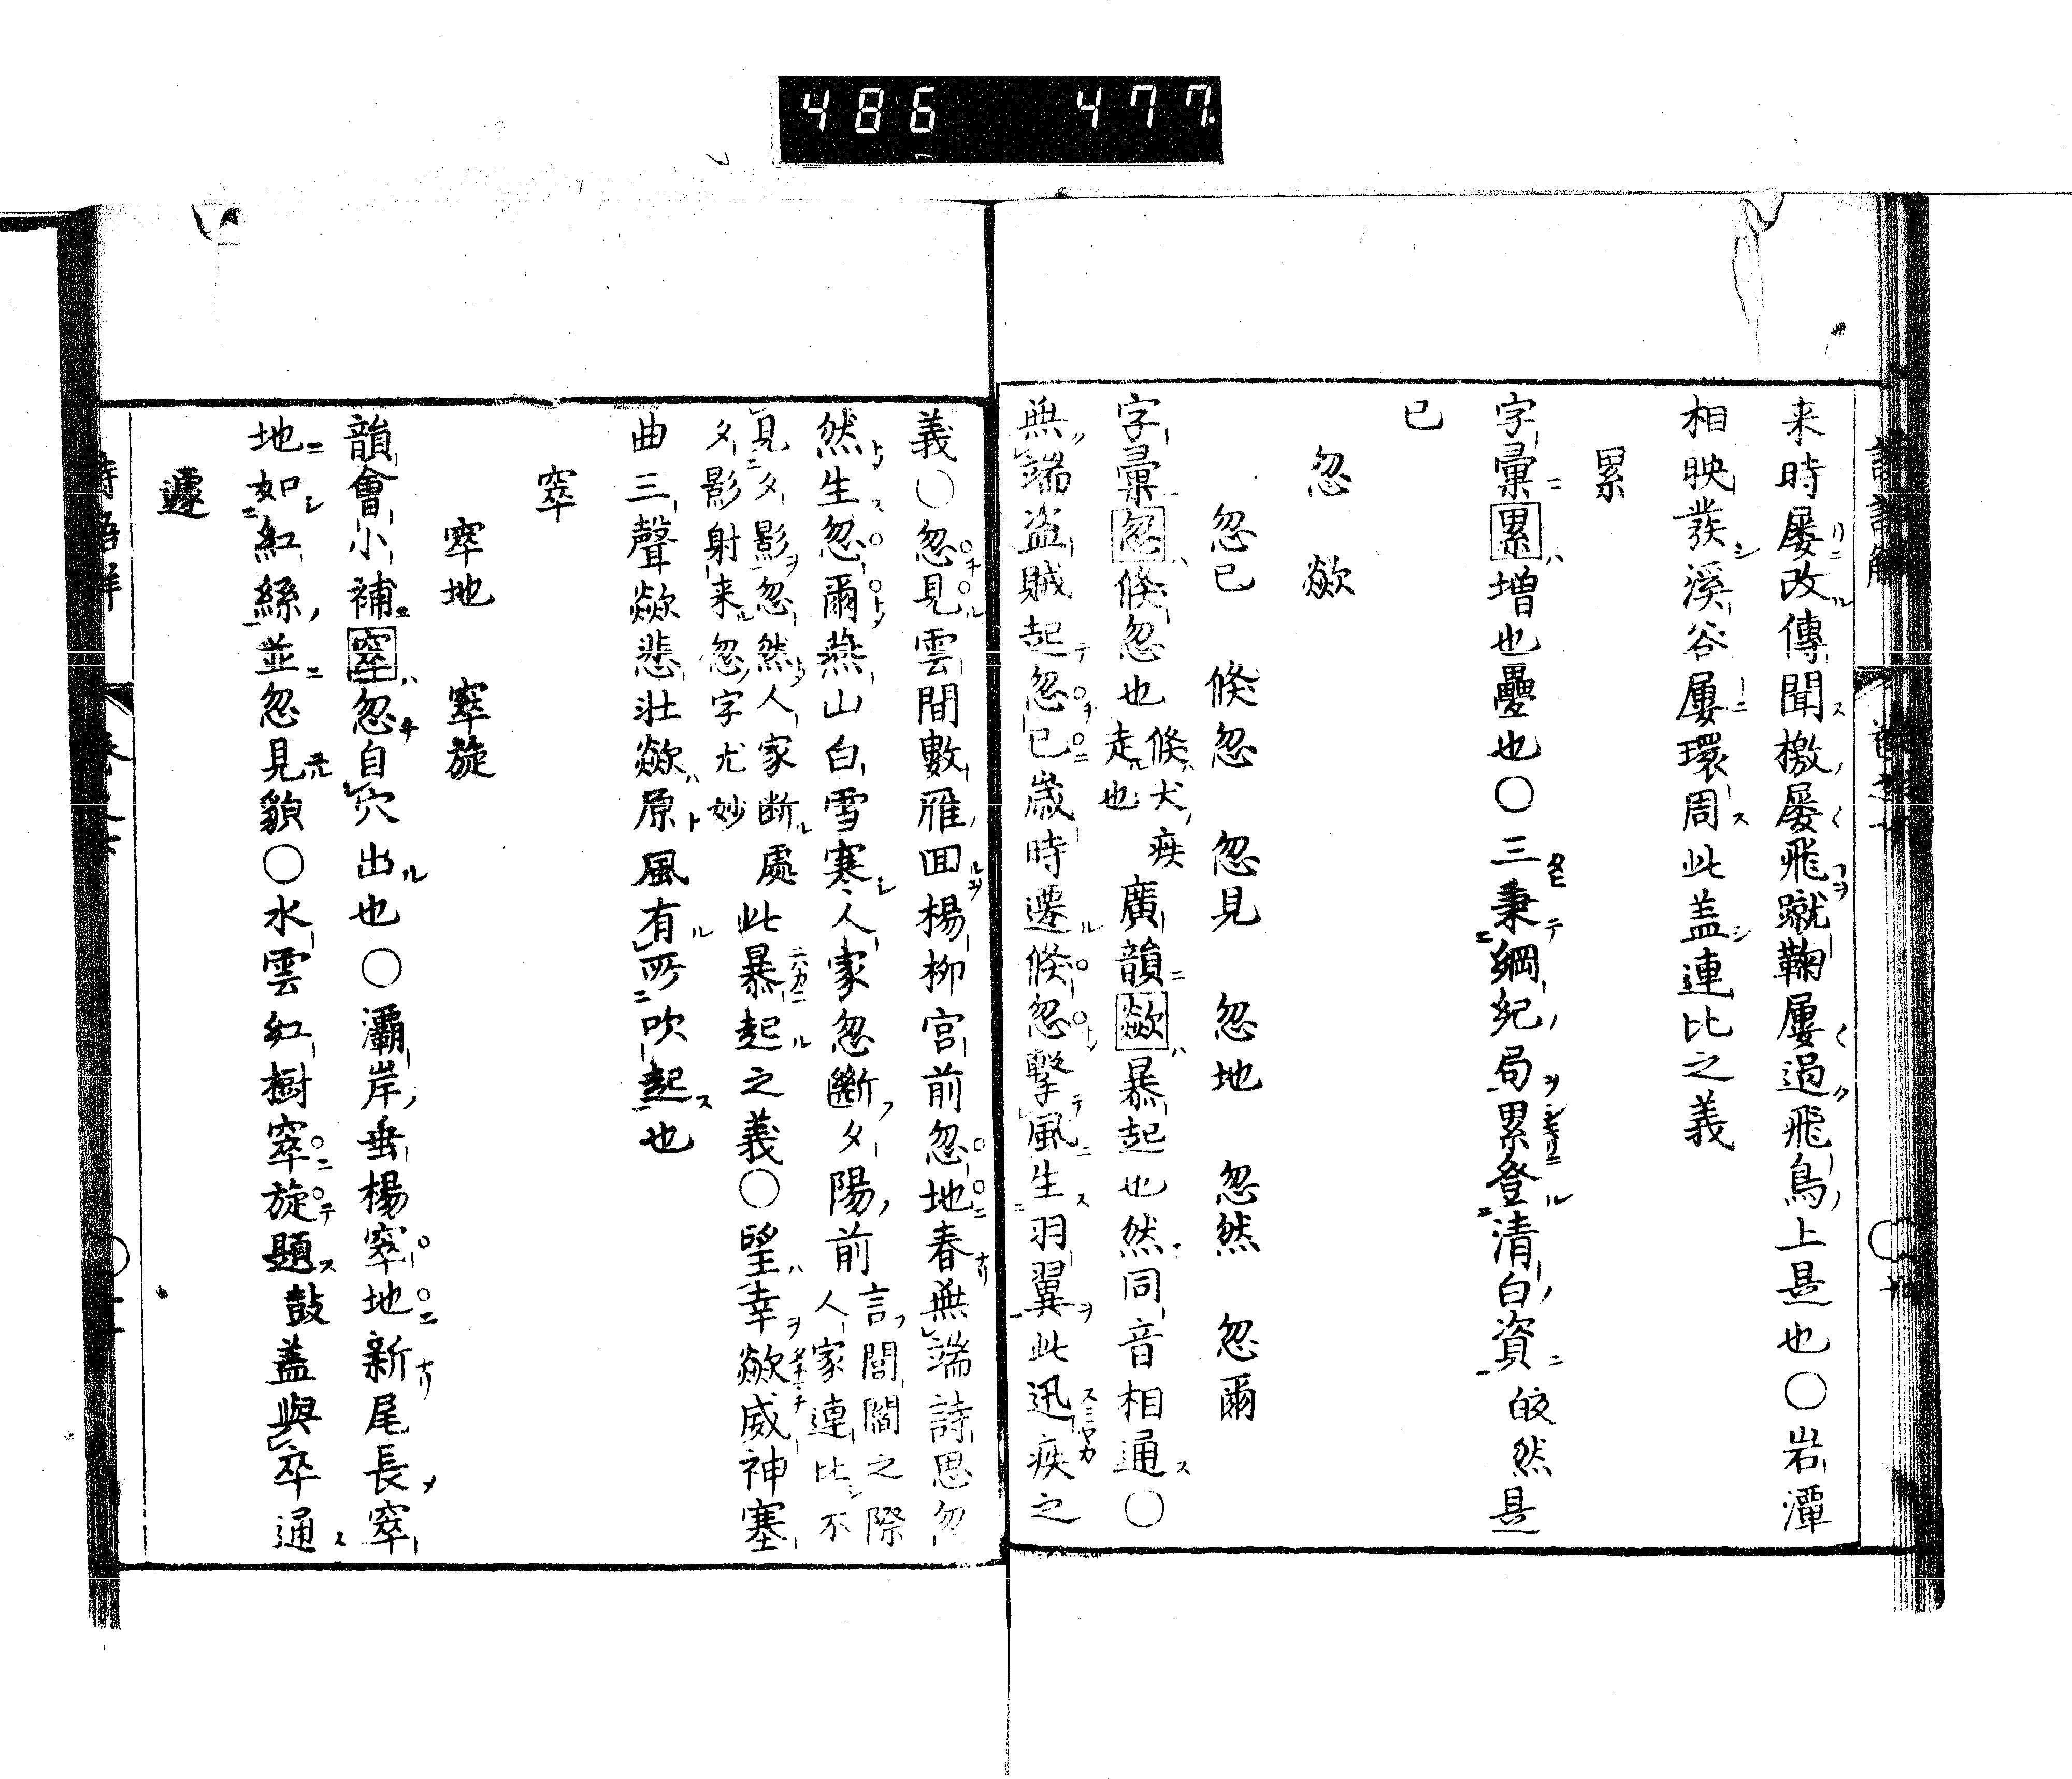 486 477
来時屡改傳聞檄屡飛蹴鞠屢過飛鳥上是也○岩潭
相映發溪谷屢環周此盖連比之義
累
字彙累増也疊也○三秉綱紀局累登清白資皎然是
已
忽 歘
忽已 倏忽 忽見 忽地 忽然 忽爾
字彙忽倏忽也倏犬疾走也廣韻歘暴起也然同音相通○
無端盗賊起忽已歳時遷倏忽擊風生羽翼此迅疾之
義○忽見雲間數雁回楊柳宮前忽地春無端詩思忽
然生忽爾燕山白雪寒人家忽斷夕陽前言閭閻之際人家連比不
見夕影忽然人家断處夕影射来忽字尤妙此暴起之義○望幸歘威神塞
曲三聲歘悲壮歘原風有所吹起也
窣
窣地 窣旋
韻會小補窣忽自穴出也○灞岸垂楊窣地新尾長窣
地如紅絲並忽見貌○水雲紅樹窣旋題鼓盖與卒通
遽